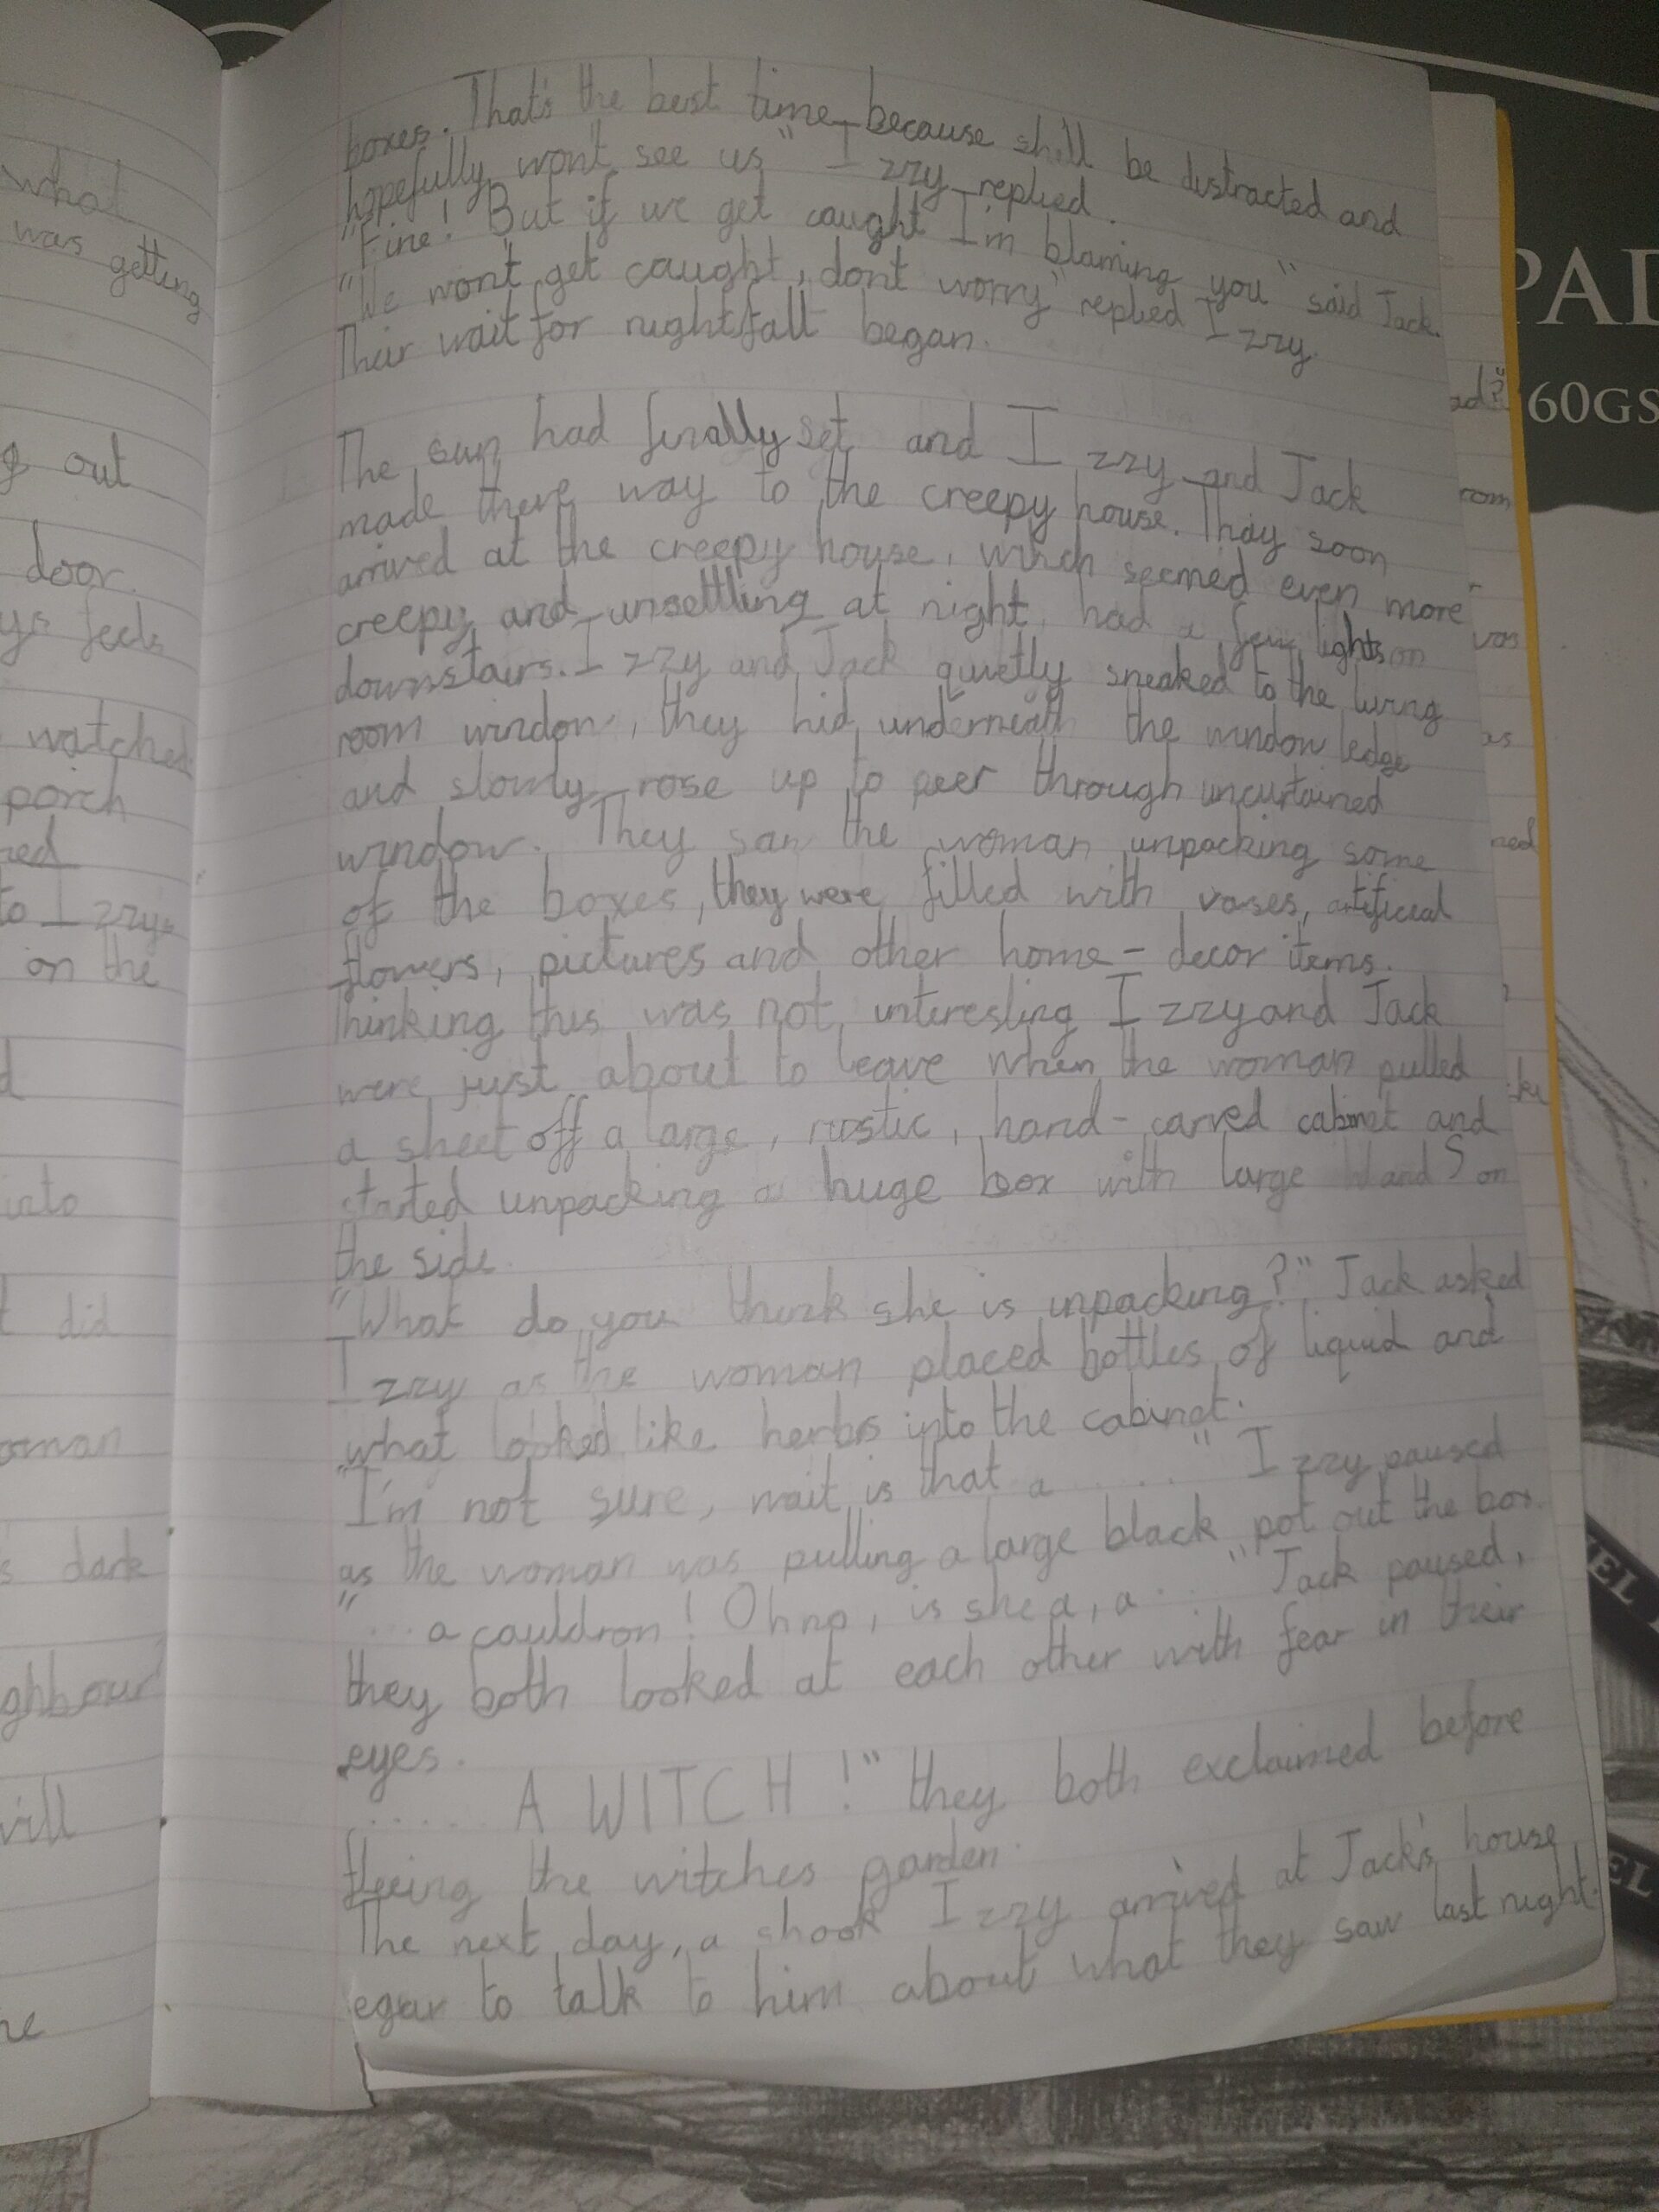 what
was getting
g out
door.
ys feels
watched
porch
red
to Izzys
on the
d
into
t did
oman
s dark
ghbour
will
he
boxes. That's the best time because sh'll be distracted and
hopefully won't see us" Izzy replied.
"Fine! But if we get caught I'm blaming you" said Jack.
"We won't get caught, don't worry" replied Izzy.
Their wait for nightfall began.
The sun had finally set and Izzy and Jack
made there way to the creepy house. Thay soon
arrived at the creepy house, which seemed even more
creepy and unsettling at night, had a few lights on
downstairs. Izzy and Jack quietly sneaked to the living
room window, they hid underneath the window ledge
and slowly rose up to peer through uncurtained
window. They saw the woman unpacking some
of the boxes, they were filled with vases, artificial
flowers, pictures and other home-decor items.
Thinking this was not interesting Izzy and Jack
were just about to leave when the woman pulled
a sheet off a large, rustic, hand-carved cabinet and
started unpacking a huge box with large W and S on
the side.
"What do you think she is unpacking?" Jack asked
Izzy as the woman placed bottles of liquid and
what looked like herbs into the cabinet.
"I'm not sure, wait is that a ....." Izzy paused
as the woman was pulling a large black pot out the box.
"... a cauldron! Oh no, is she a, a ..." Jack paused,
they both looked at each other with fear in their
eyes.
..... A WITCH!" they both exclaimed before
fleeing the witches garden.
The next day, a shook Izzy arrived at Jack's house
egar to talk to him about what they saw last night.
ad?"
rom
vas
as
ned
PAD
60GS
EL
EL